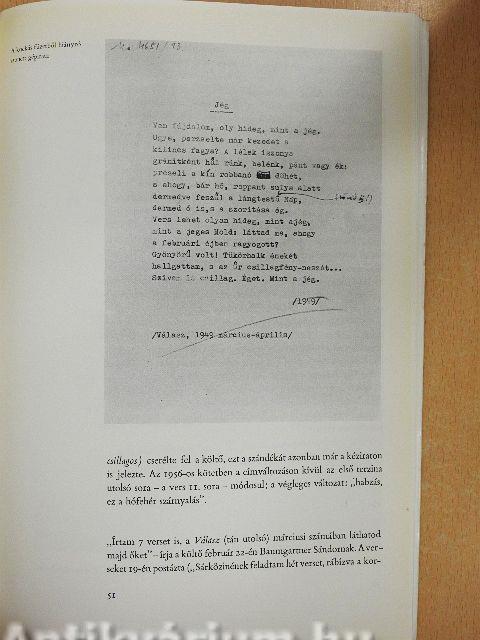 A kockás füzetből hiányzó
ismert gépirat
M. 4651/13
Jég
Van fájdalom, oly hideg, mint a jég.
Ugye, perzselte már kezedet a
kilincs fagya? A lélek iszonya
gránitként hűl ránk, belénk, pánt vagy ék:
préseli a kín robbanó dühét,
s ahogy, bár hő, roppant sulya alatt
dermedve feszűl a lángtestű Nap,
dermed ő is, s a szorítása ég.
Vers lehet olyan hideg, mint a jég,
mint a jeges Hold: láttad ma, ahogy
a februári éjben ragyogott?
Gyönyörű volt! Tükörhalk énekét
hallgattam, s az űr csillagfény-neszét...
Szivem is csillag. Éget. Mint a jég.
/1949/
/Válasz, 1949 március-április/
csillagos) cserélte fel a költő, ezt a szándékát azonban már a kéziraton
is jelezte. Az 1956-os kötetben a címváltozáson kívül az első terzina
utolsó sora – a vers 11. sora – módosul; a végleges változat: „habzás,
ez a hófehér szárnyalás".
„Írtam 7 verset is, a Válasz (tán utolsó) márciusi számában láthatod
majd őket" – írja a költő február 22-én Baumgartner Sándornak. A ver-
seket 19-én postázta („Sárközinének feladtam hét verset, rábízva a kor-
51
Antikvárium.hu